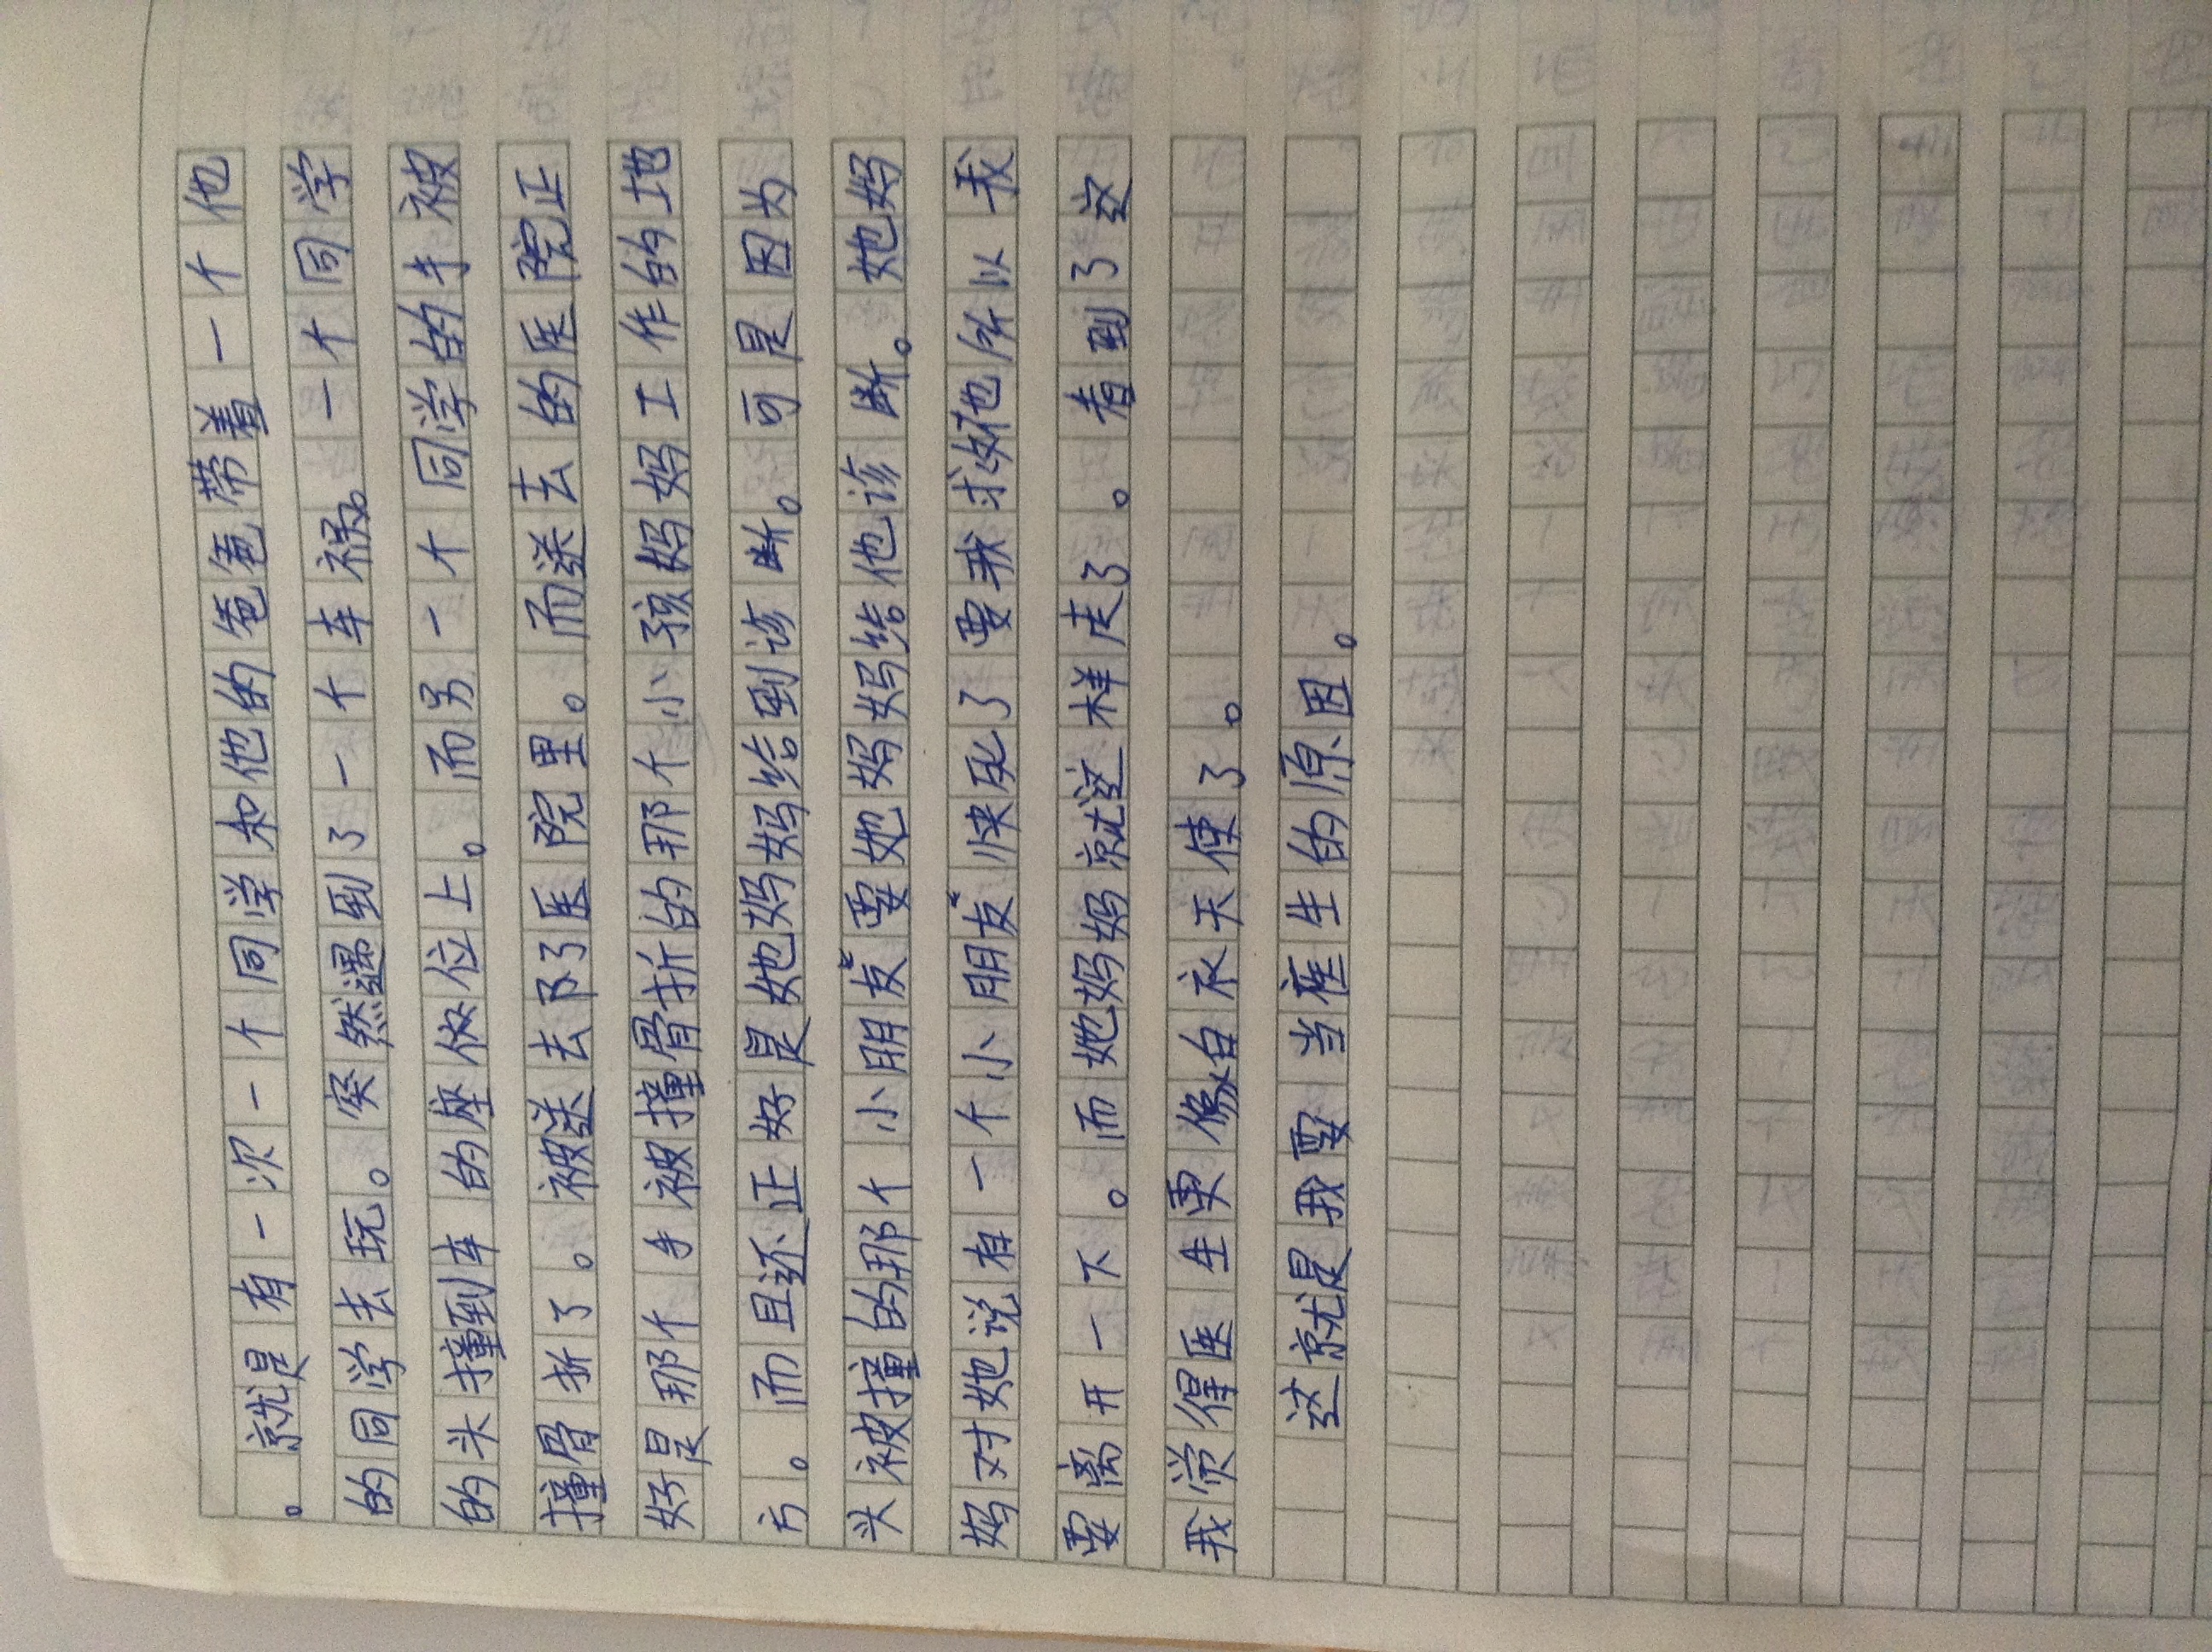 。就是有一次一个同学和他的爸爸带着一个他
的同学去玩。突然遇到了一个车祸。一个同学
的头撞到车的座依位上。而另一个同学的手被
撞骨折了。被送去阝了医院里。而送去的医院正
好是那个手被撞骨折的那个小孩妈妈工作的地
方。而且还正好是她妈妈给到该断。可是因为
头被撞的那个小朋友要她妈妈给他该断。她妈
妈对她说有一个小朋友快死了要我求好他所以我
要离开一下。而她妈妈就这样走了。看到了这
我觉得医生更像白衣天使了。
这就是我要当座生的原因。